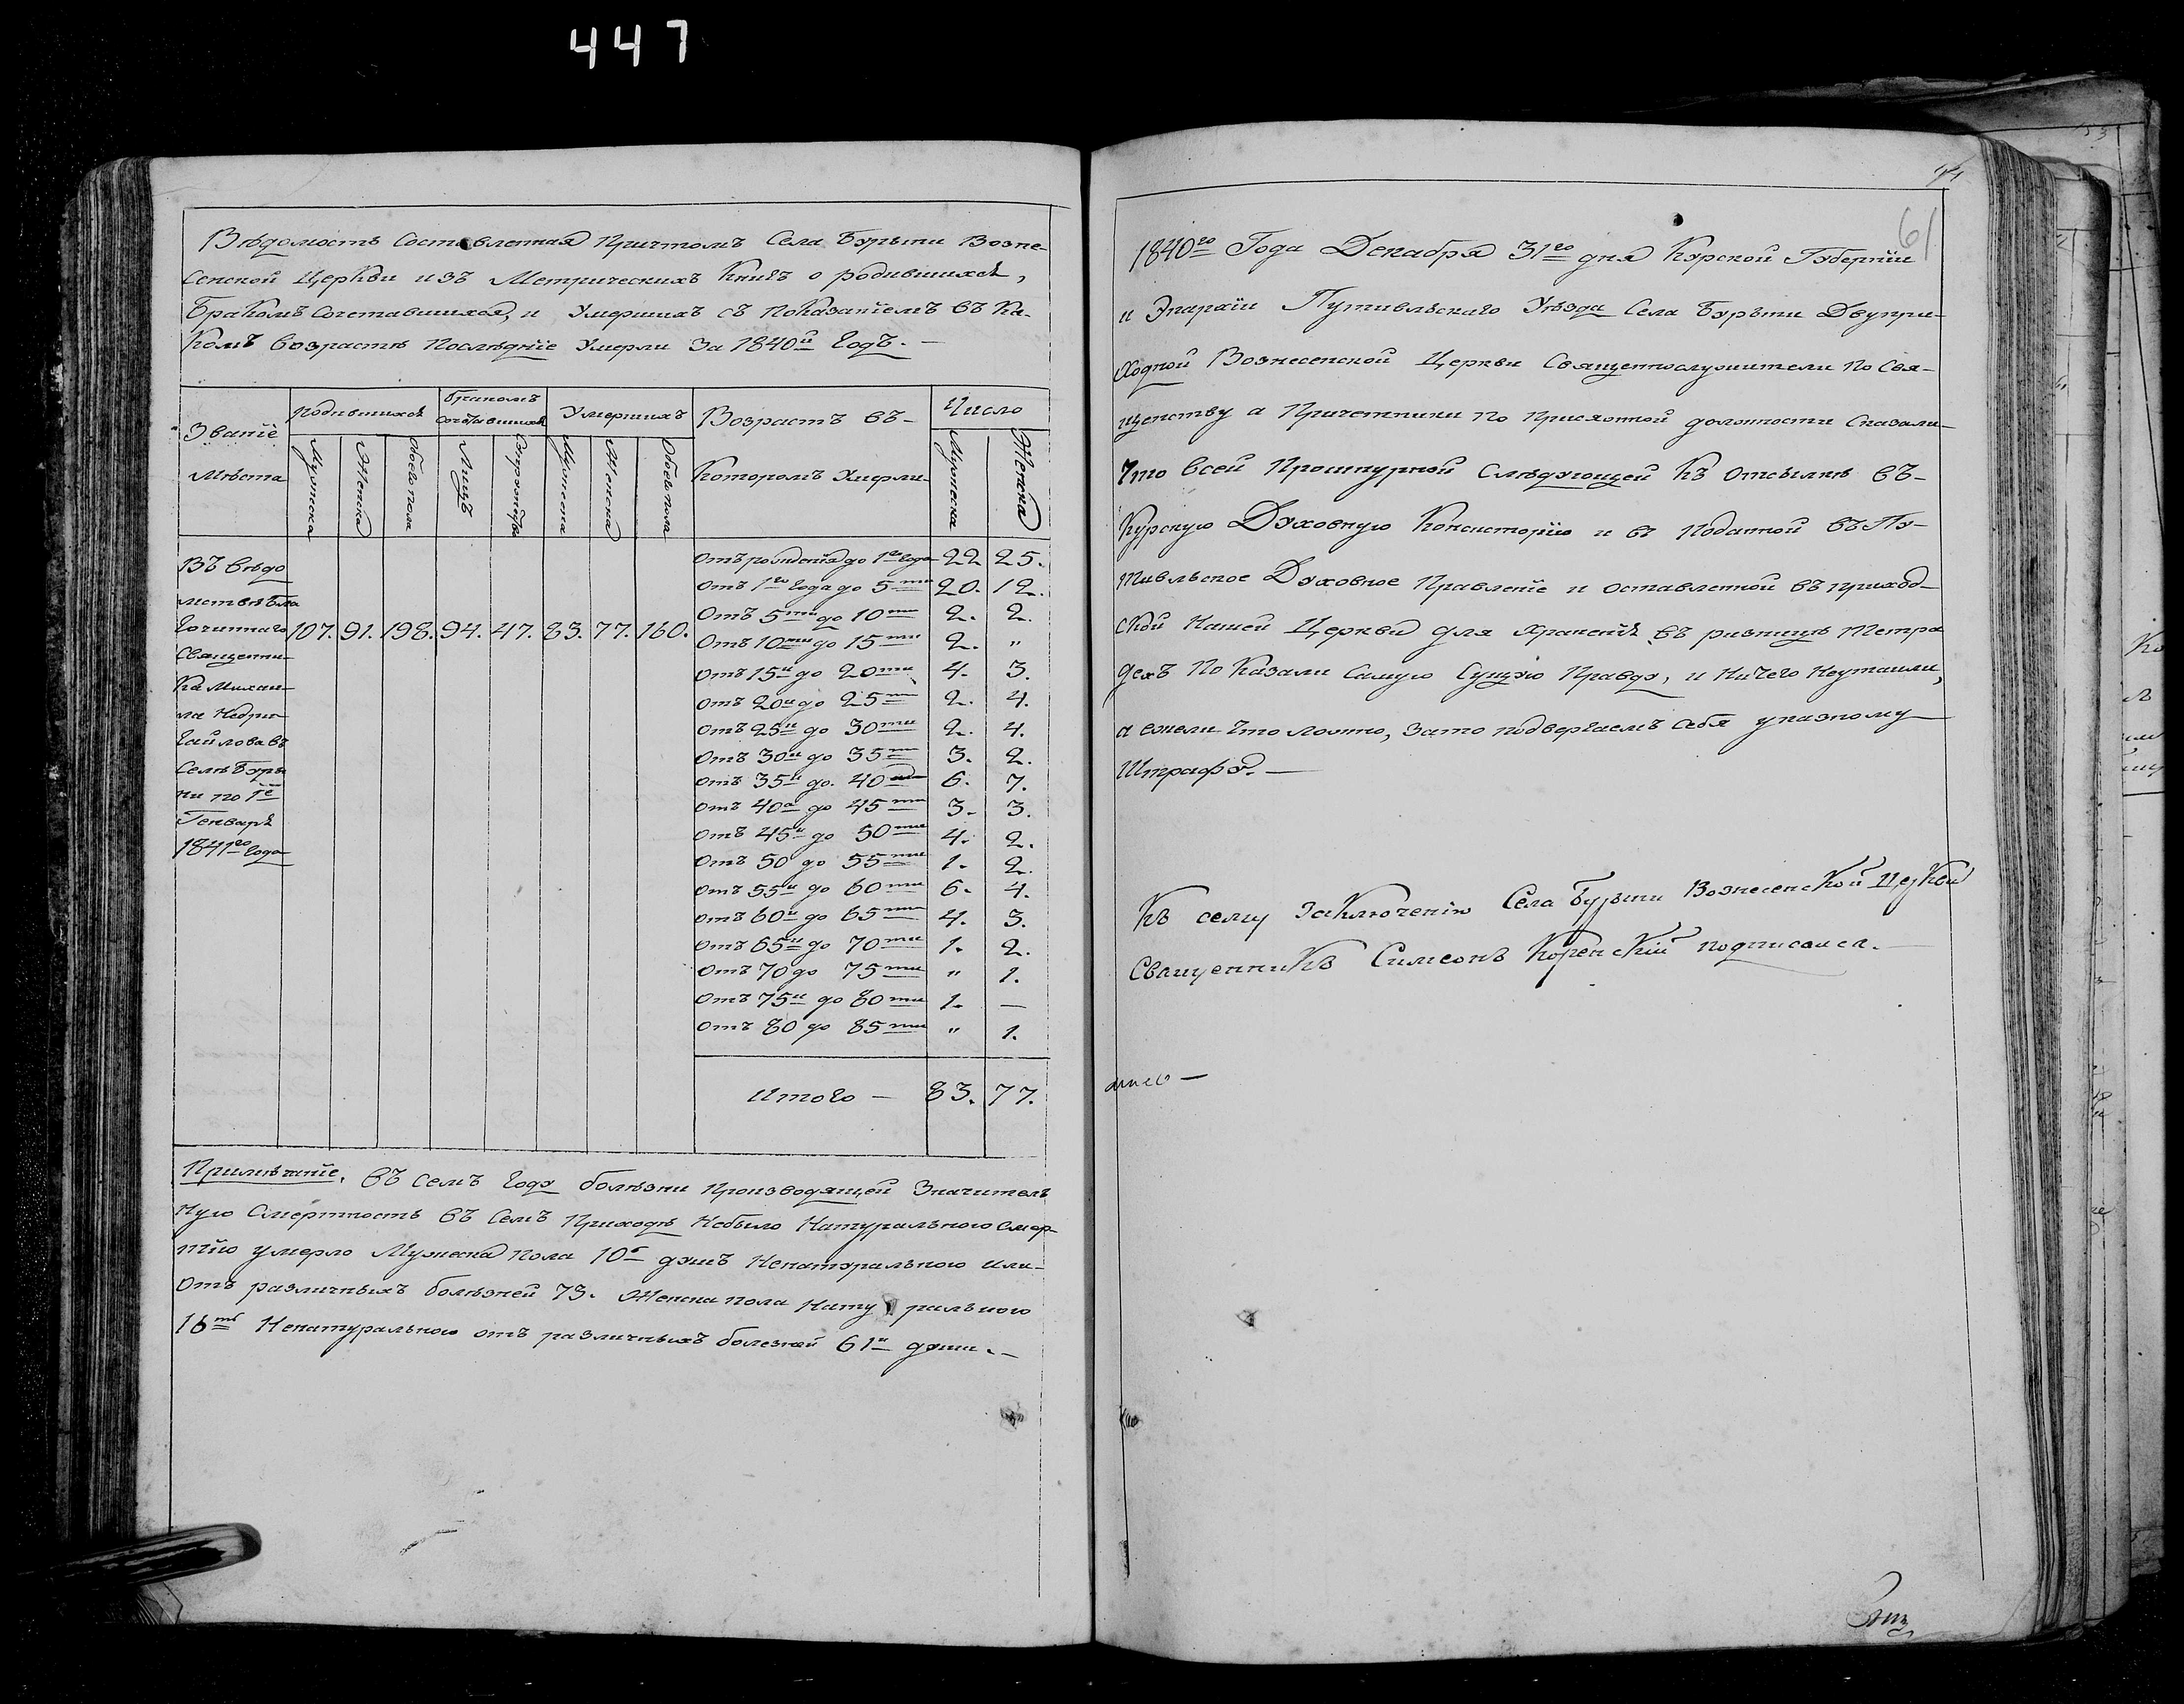 447
Вѣдомость Составленная Причтомъ Села Бурыни Возне-
сенской Церкви изъ Метрическихъ Книгъ о родившихся,
Бракомъ Сочетавшихся, и Умершихъ съ показанiемъ въ Ка-
комъ возрастѣ Послѣднiе Умерли За 1840й Годъ. —
Званiе Мѣста
родившихся
бракомъ сочетавшихся
Умершихъ
Возрастъ въ-
Которомъ Умерли
Число
Мужеска
Женска
Обоего пола
Лицъ
Супружествъ
Мужеска
Женска
Обоего пола
Мужеска
Женска
Въ вѣдо
мствѣ бла
гочиннаго
Священни-
ка Михаи-
ла Недри-
гайлова въ
Селѣ Буры
ни по 1е
Генваря
1841го года
107. 91. 198. 94. 47. 83. 77. 160.
Отъ рожденiя до 1го года 22 25.
Отъ 1го года до 5ти 20. 12.
Отъ 5ти до 10ти 2. 2.
Отъ 10ти до 15ти 2. "
Отъ 15и до 20ти 4. 3.
Отъ 20и до 25ти 2. 4.
Отъ 25и до 30ти 2. 4.
Отъ 30и до 35ти 3. 2.
Отъ 35и до 40 6. 7.
Отъ 40а до 45ти 3. 3.
Отъ 45и до 50ти 4. 2.
Отъ 50 до 55ти 1. 2.
Отъ 55и до 60ти 6. 4.
Отъ 60и до 65ти 4. 3.
Отъ 65и до 70ти 1. 2.
Отъ 70 до 75ти " 1.
Отъ 75и до 80ти 1. —
Отъ 80 до 85ти " 1.
Итого — 83. 77.
Примѣчанiе. Въ Семъ Году болѣзни Производящей Значитель
ную Смертность въ Семъ Приходѣ Небыло Натуральною смер-
тiю умерло Мужеска пола 10ь душъ Ненатуральною или-
Отъ различныхъ болѣзней 73. Женска пола Натуральною
16ть Ненатуральною отъ различныхъ болезней 61н души. —
61
1840го Года Декабря 31го дня Курской Губернiи
и Эпархiи Путивльскаго Уѣзда Села Бурыни Двупри-
ходной Вознесенской Церкви Священнослужители по Свя-
щенству а Причетники по Присяжной должности Сказали-
Что всей Прошнурной Слѣдующей Къ Отсылкѣ въ-
Курскую Духовную Консисторiю и въ Поданной въ Пу-
тивльское Духовное Правленiе и Оставленной въ приход-
ской Нашей Церкви для Храненiя въ ризницѣ Тетра
дехъ Показали Самую Сущую Правду, и Ничего Неутаили,
а ежели Что ложно, Зато подвергаемъ Себя указному
Штрафу. —
Къ сему заключенiю Села Бурыни Вознесенской Церкви
Священникъ Симеонъ Коренскiй подписался. —